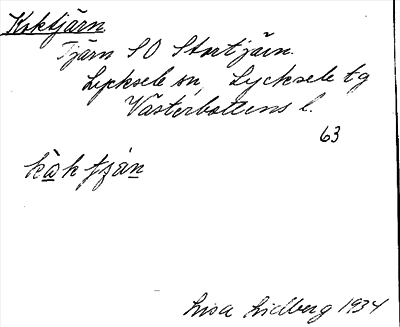 Koktjärn
Tjärn SO Stortjärn.
Lycksele sn, Lycksele tg
Västerbottens l.
63
kàk tján
Lisa Lidberg 1934